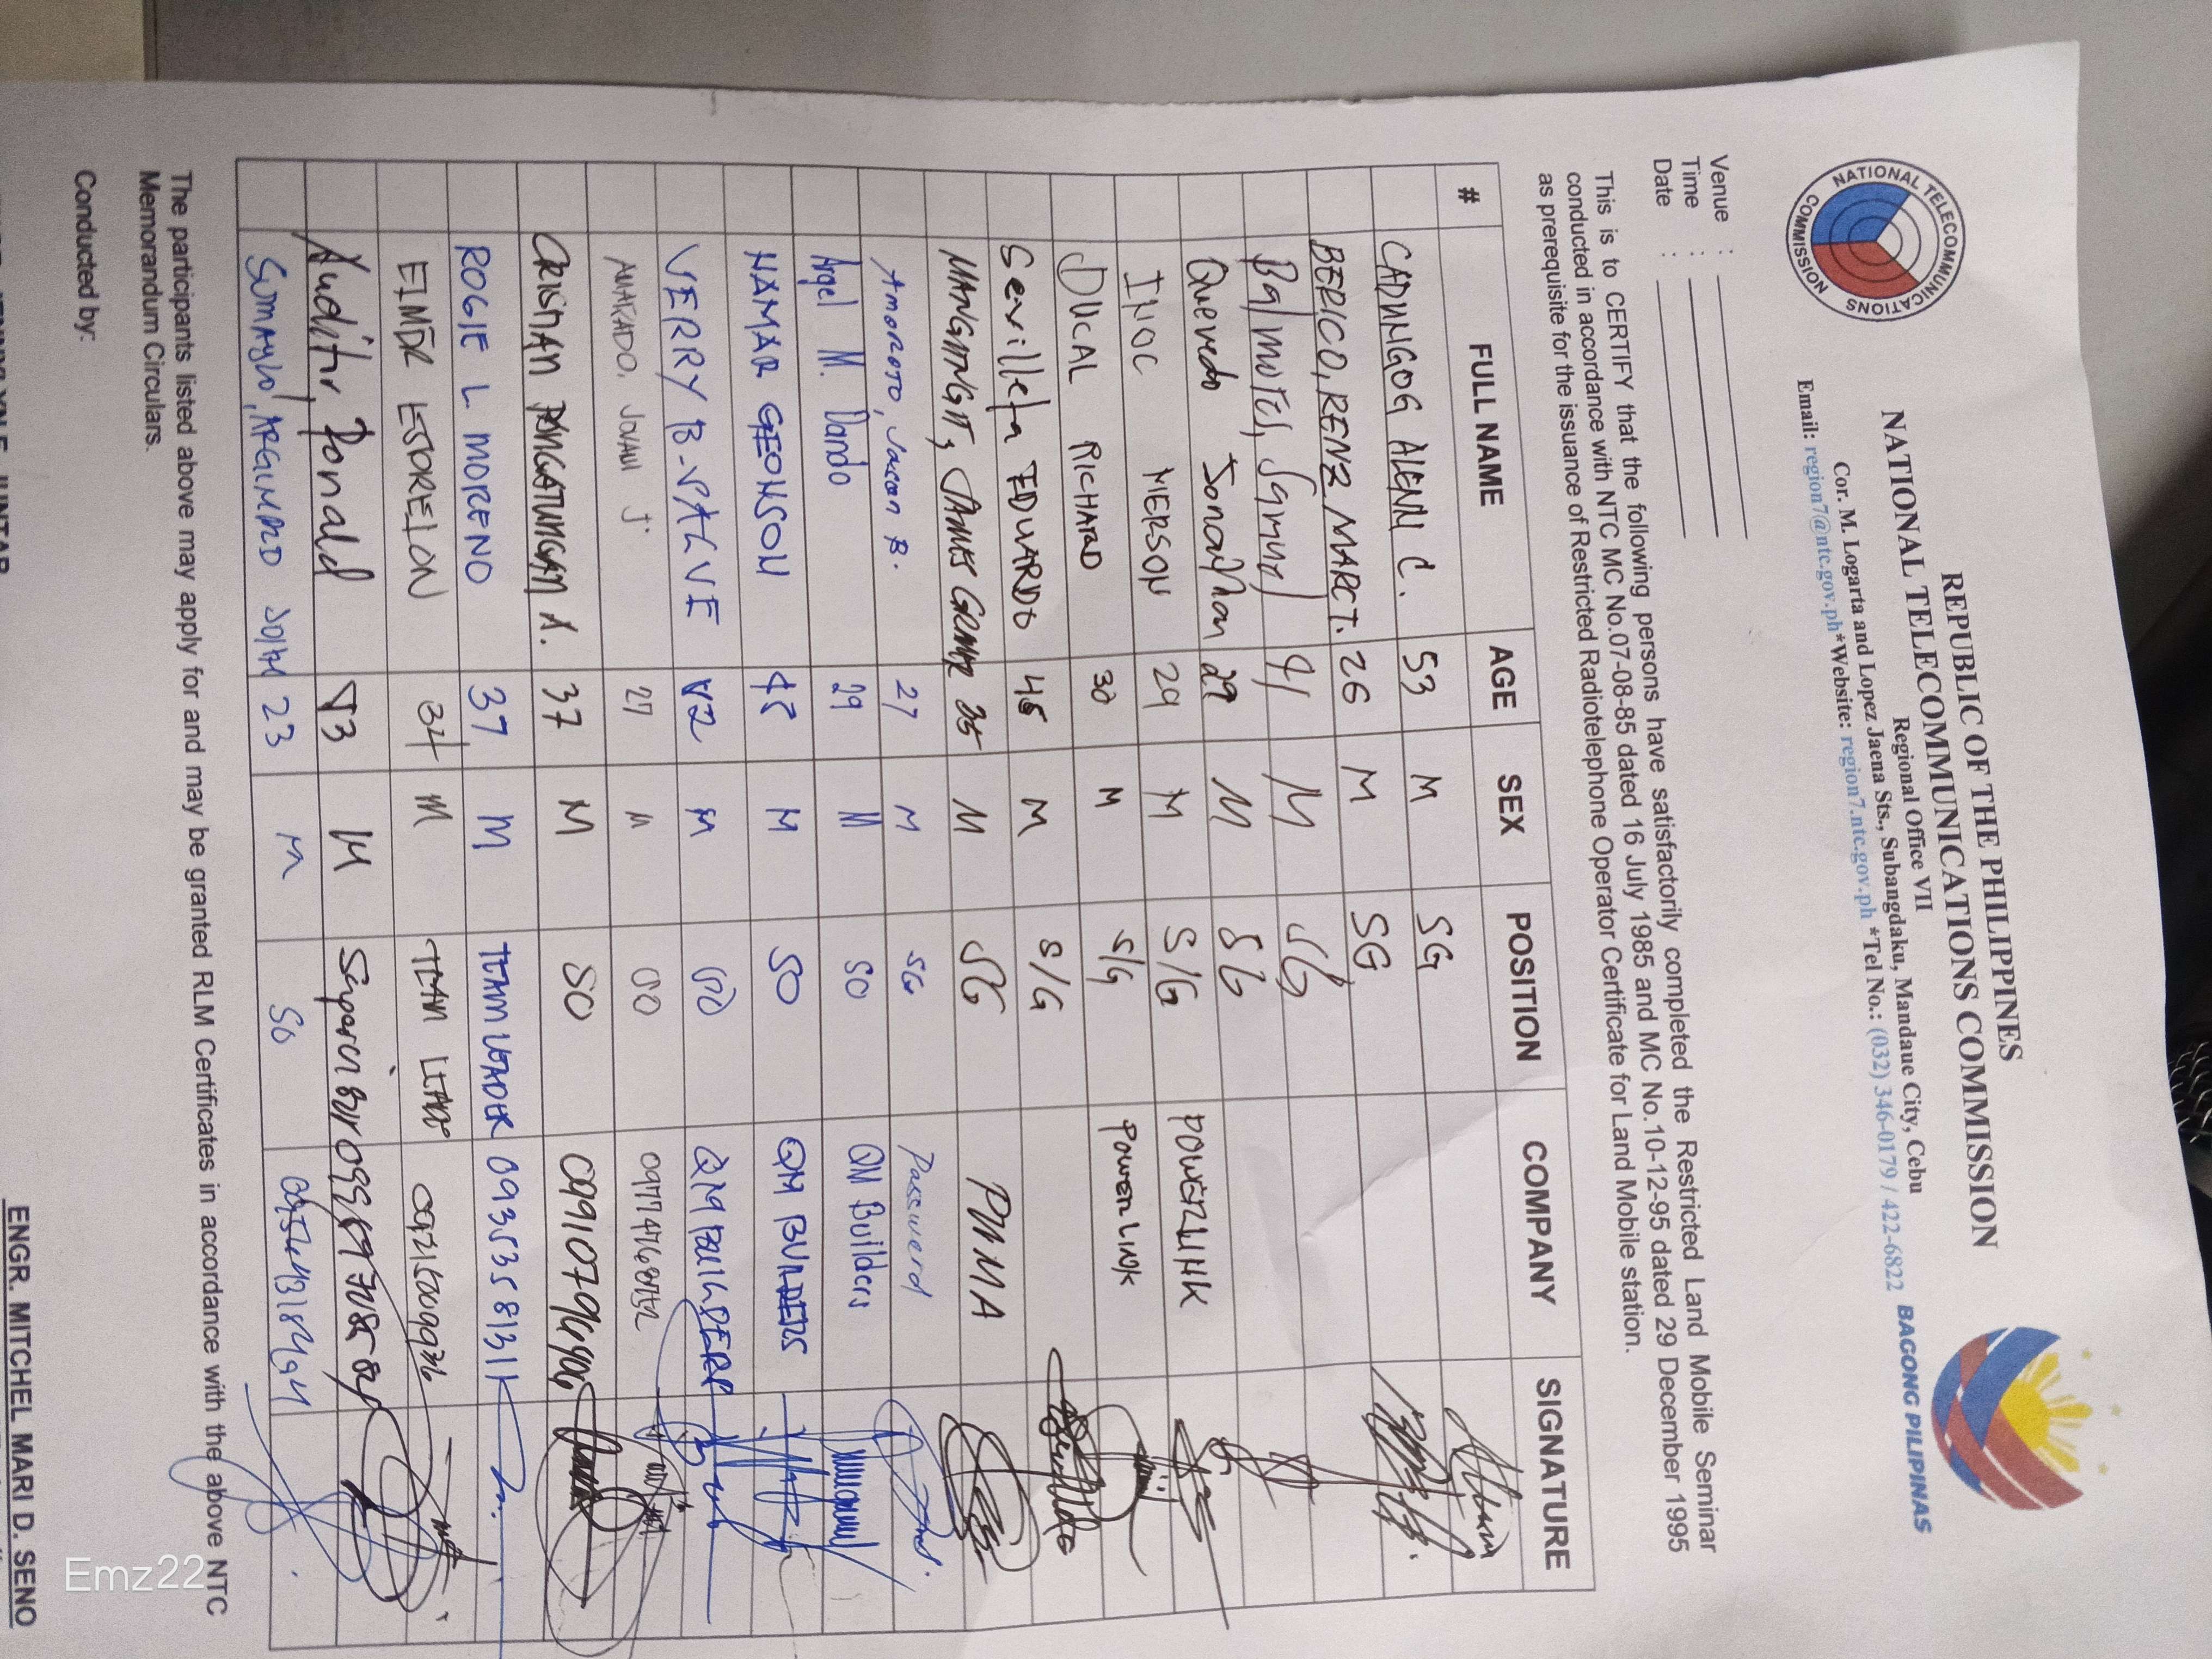 NATIONAL TELECOMMUNICATIONS COMMISSION
REPUBLIC OF THE PHILIPPINES
NATIONAL TELECOMMUNICATIONS COMMISSION
Regional Office VII
Cor. M. Logarta and Lopez Jaena Sts., Subangdaku, Mandaue City, Cebu
Email: region7@ntc.gov.ph*Website: region7.ntc.gov.ph *Tel No.: (032) 346-0179 / 422-6822
BAGONG PILIPINAS
Venue :
Time :
Date :
This is to CERTIFY that the following persons have satisfactorily completed the Restricted Land Mobile Seminar
conducted in accordance with NTC MC No.07-08-85 dated 16 July 1985 and MC No.10-12-95 dated 29 December 1995
as prerequisite for the issuance of Restricted Radiotelephone Operator Certificate for Land Mobile station.
# FULL NAME AGE SEX POSITION COMPANY SIGNATURE
CADUNGOG ALENN C. 53 M SG
BERICO, RENZ MARC T. 26 M SG
Balmotes, Samuel 41 M S/G
Quevedo Jonathan 29 M S/G
INOC MERSON 29 M S/G POWERLINK
DUCAL RICHARD 30 M S/G PowerLink
Sevilleta EDUARDO M S/G
MANGITNGIT, JAMES 35 M S/G PMMA
Amoroto, Jason B. 27 M SG Password
Argel M. Dando 29 M SO QM Builders
HAMAR GEONSON 45 M SO QM BUILDERS
VERRY B. SALVE 42 M SO QM BUILDERS
AMARADO, JOVANI J. 27 M SO
CRISTIAN PANGATUNGAN A. 37 M SO
ROGIE L. MORENO 37 M TEAM LEADER
ELMER ESTORELON M TEAM LEADER
Auditor, Ronald 53 M
SUMAYLO, JOHN 23 M SO
The participants listed above may apply for and may be granted RLM Certificates in accordance with the above NTC
Memorandum Circulars.
Conducted by:
ENGR. MITCHEL MARI D. SENO
Emz22